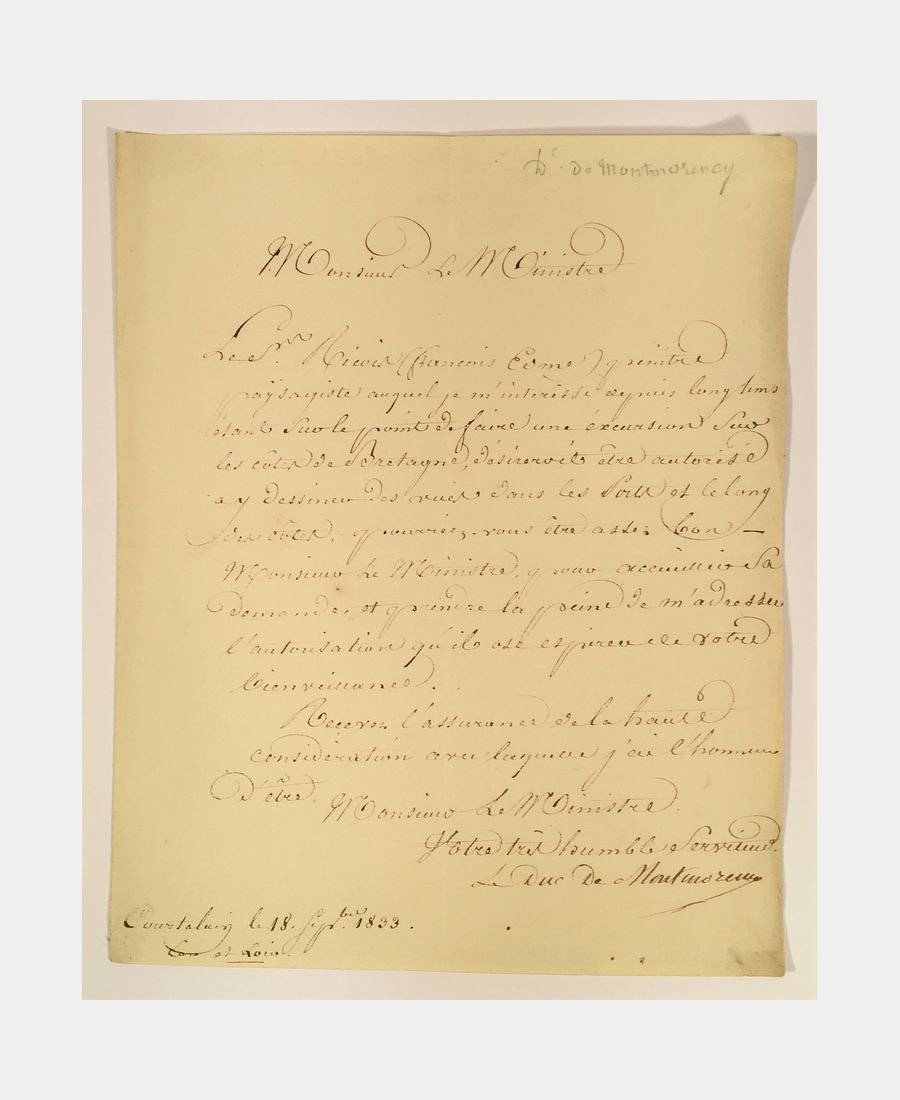 Dc. De Montmorency
Monsieur Le Ministre
Le Sr. Ricois (francois Edme) peintre
paÿsagiste auquel je m'intéresse depuis longtems
étant sur le point de faire une éxcursion sur
les côtes de Bretagne, désireroit être autorisé
a y dessiner des vues dans les Ports et le long
des côtes. pourriez vous être assez bon —
Monsieur Le Ministre, pour accueillir sa
demande, et prendre la peine de m'adresser
l'autorisation qu'il ose esperer de votre
bienveillance.
Recevez l'assurance de la haute
considération avec laquelle j'ai l'honneur
D'être.
Monsieur Le Ministre.
Votre très humble Serviteur.
Le Duc De Montmorency
Courtalain le 18. Sepbre. 1833.
Eure et Loir.